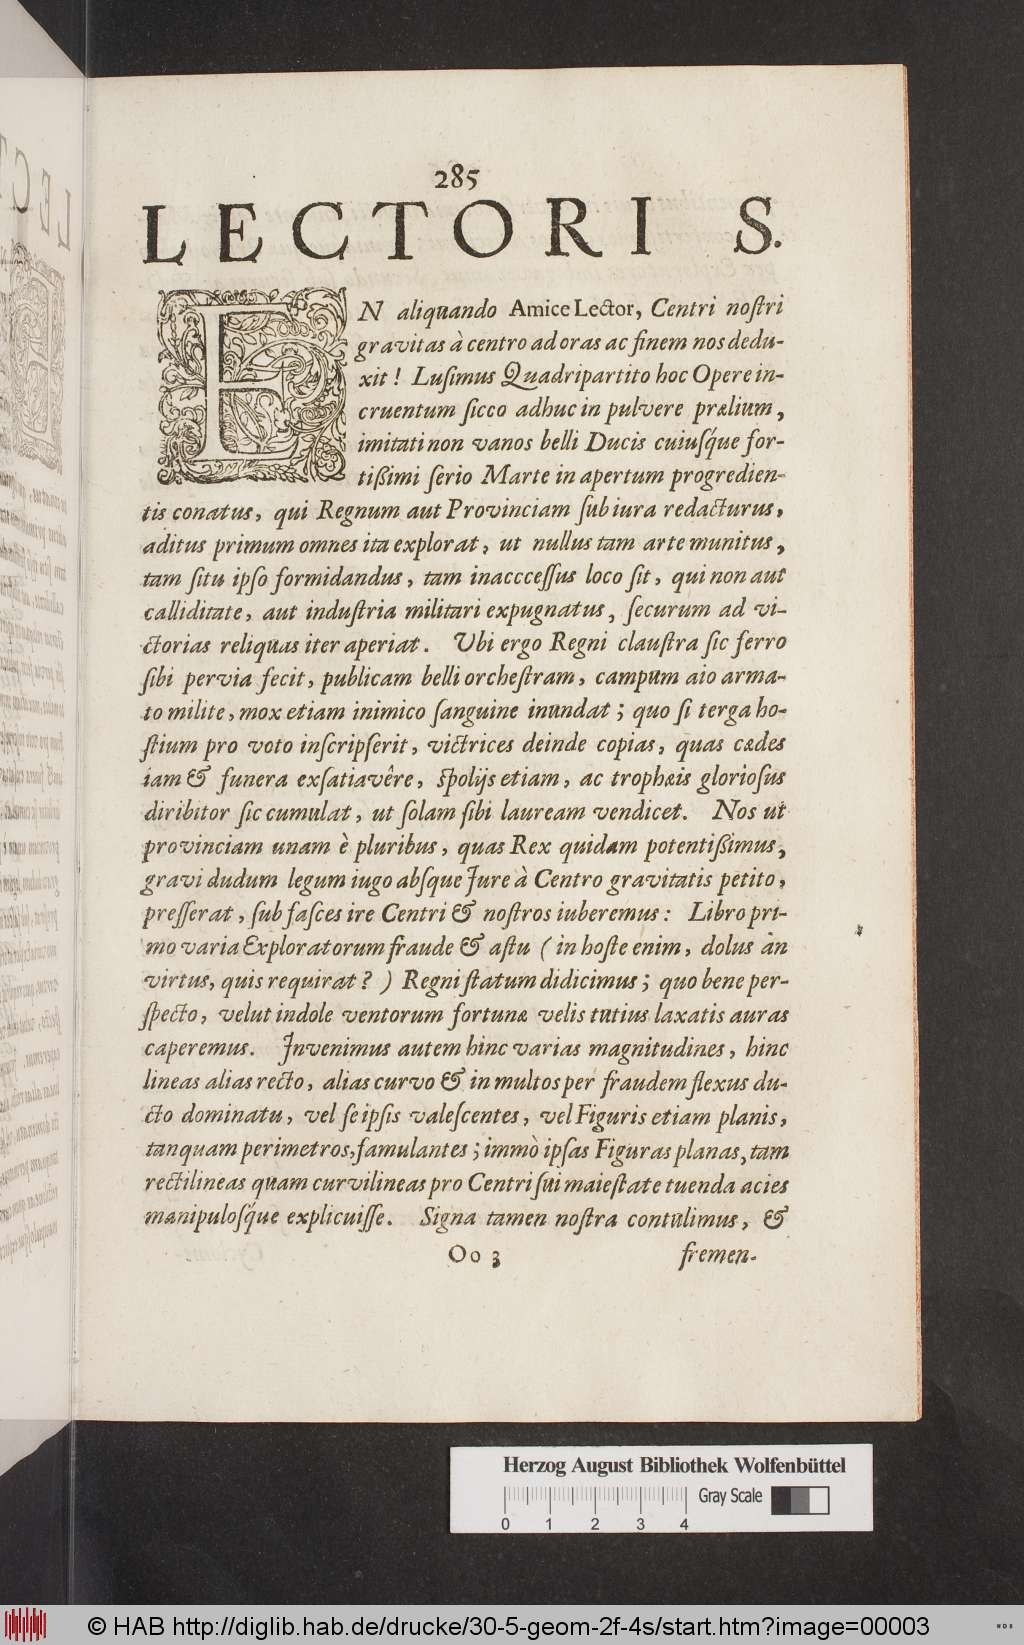 285
LECTORI S.
EN aliquando Amice Lector, Centri noſtri
gravitas à centro ad oras ac finem nos dedu-
xit! Luſimus Quadripartito hoc Opere in-
cruentum ſicco adhuc in pulvere prælium,
imitati non vanos belli Ducis cuiuſq́ue for-
tißimi ſerio Marte in apertum progredien-
tis conatus, qui Regnum aut Provinciam ſub iura redacturus,
aditus primum omnes ita explorat, ut nullus tam arte munitus,
tam ſitu ipſo formidandus, tam inacceſſus loco ſit, qui non aut
calliditate, aut induſtria militari expugnatus, ſecurum ad vi-
ctorias reliquas iter aperiat. Ubi ergo Regni clauſtra ſic ferro
ſibi pervia fecit, publicam belli orcheſtram, campum aio arma-
to milite, mox etiam inimico ſanguine inundat; quo ſi terga ho-
ſtium pro voto inſcripſerit, victrices deinde copias, quas cædes
iam & funera exſatiavêre, ſpolijs etiam, ac trophæis glorioſus
diribitor ſic cumulat, ut ſolam ſibi lauream vendicet. Nos ut
provinciam unam è pluribus, quas Rex quidam potentißimus,
gravi dudum legum iugo abſque Jure à Centro gravitatis petito,
preſſerat, ſub faſces ire Centri & noſtros iuberemus: Libro pri-
mo varia Exploratorum fraude & aſtu (in hoſte enim, dolus àn
virtus, quis requirat?) Regni ſtatum didicimus; quo bene per-
ſpecto, velut indole ventorum fortunæ velis tutius laxatis auras
caperemus. Invenimus autem hinc varias magnitudines, hinc
lineas alias recto, alias curvo & in multos per fraudem flexus du-
cto dominatu, vel ſeipſis valeſcentes, vel Figuris etiam planis,
tanquam perimetros, famulantes; immò ipſas Figuras planas, tam
rectilineas quam curvilineas pro Centri ſui maieſtate tuenda acies
manipuloſq́ue explicuiſſe. Signa tamen noſtra contulimus, &
Oo 3 fremen-
Herzog August Bibliothek Wolfenbüttel
Gray Scale
0 1 2 3 4
© HAB http://diglib.hab.de/drucke/30-5-geom-2f-4s/start.htm?image=00003